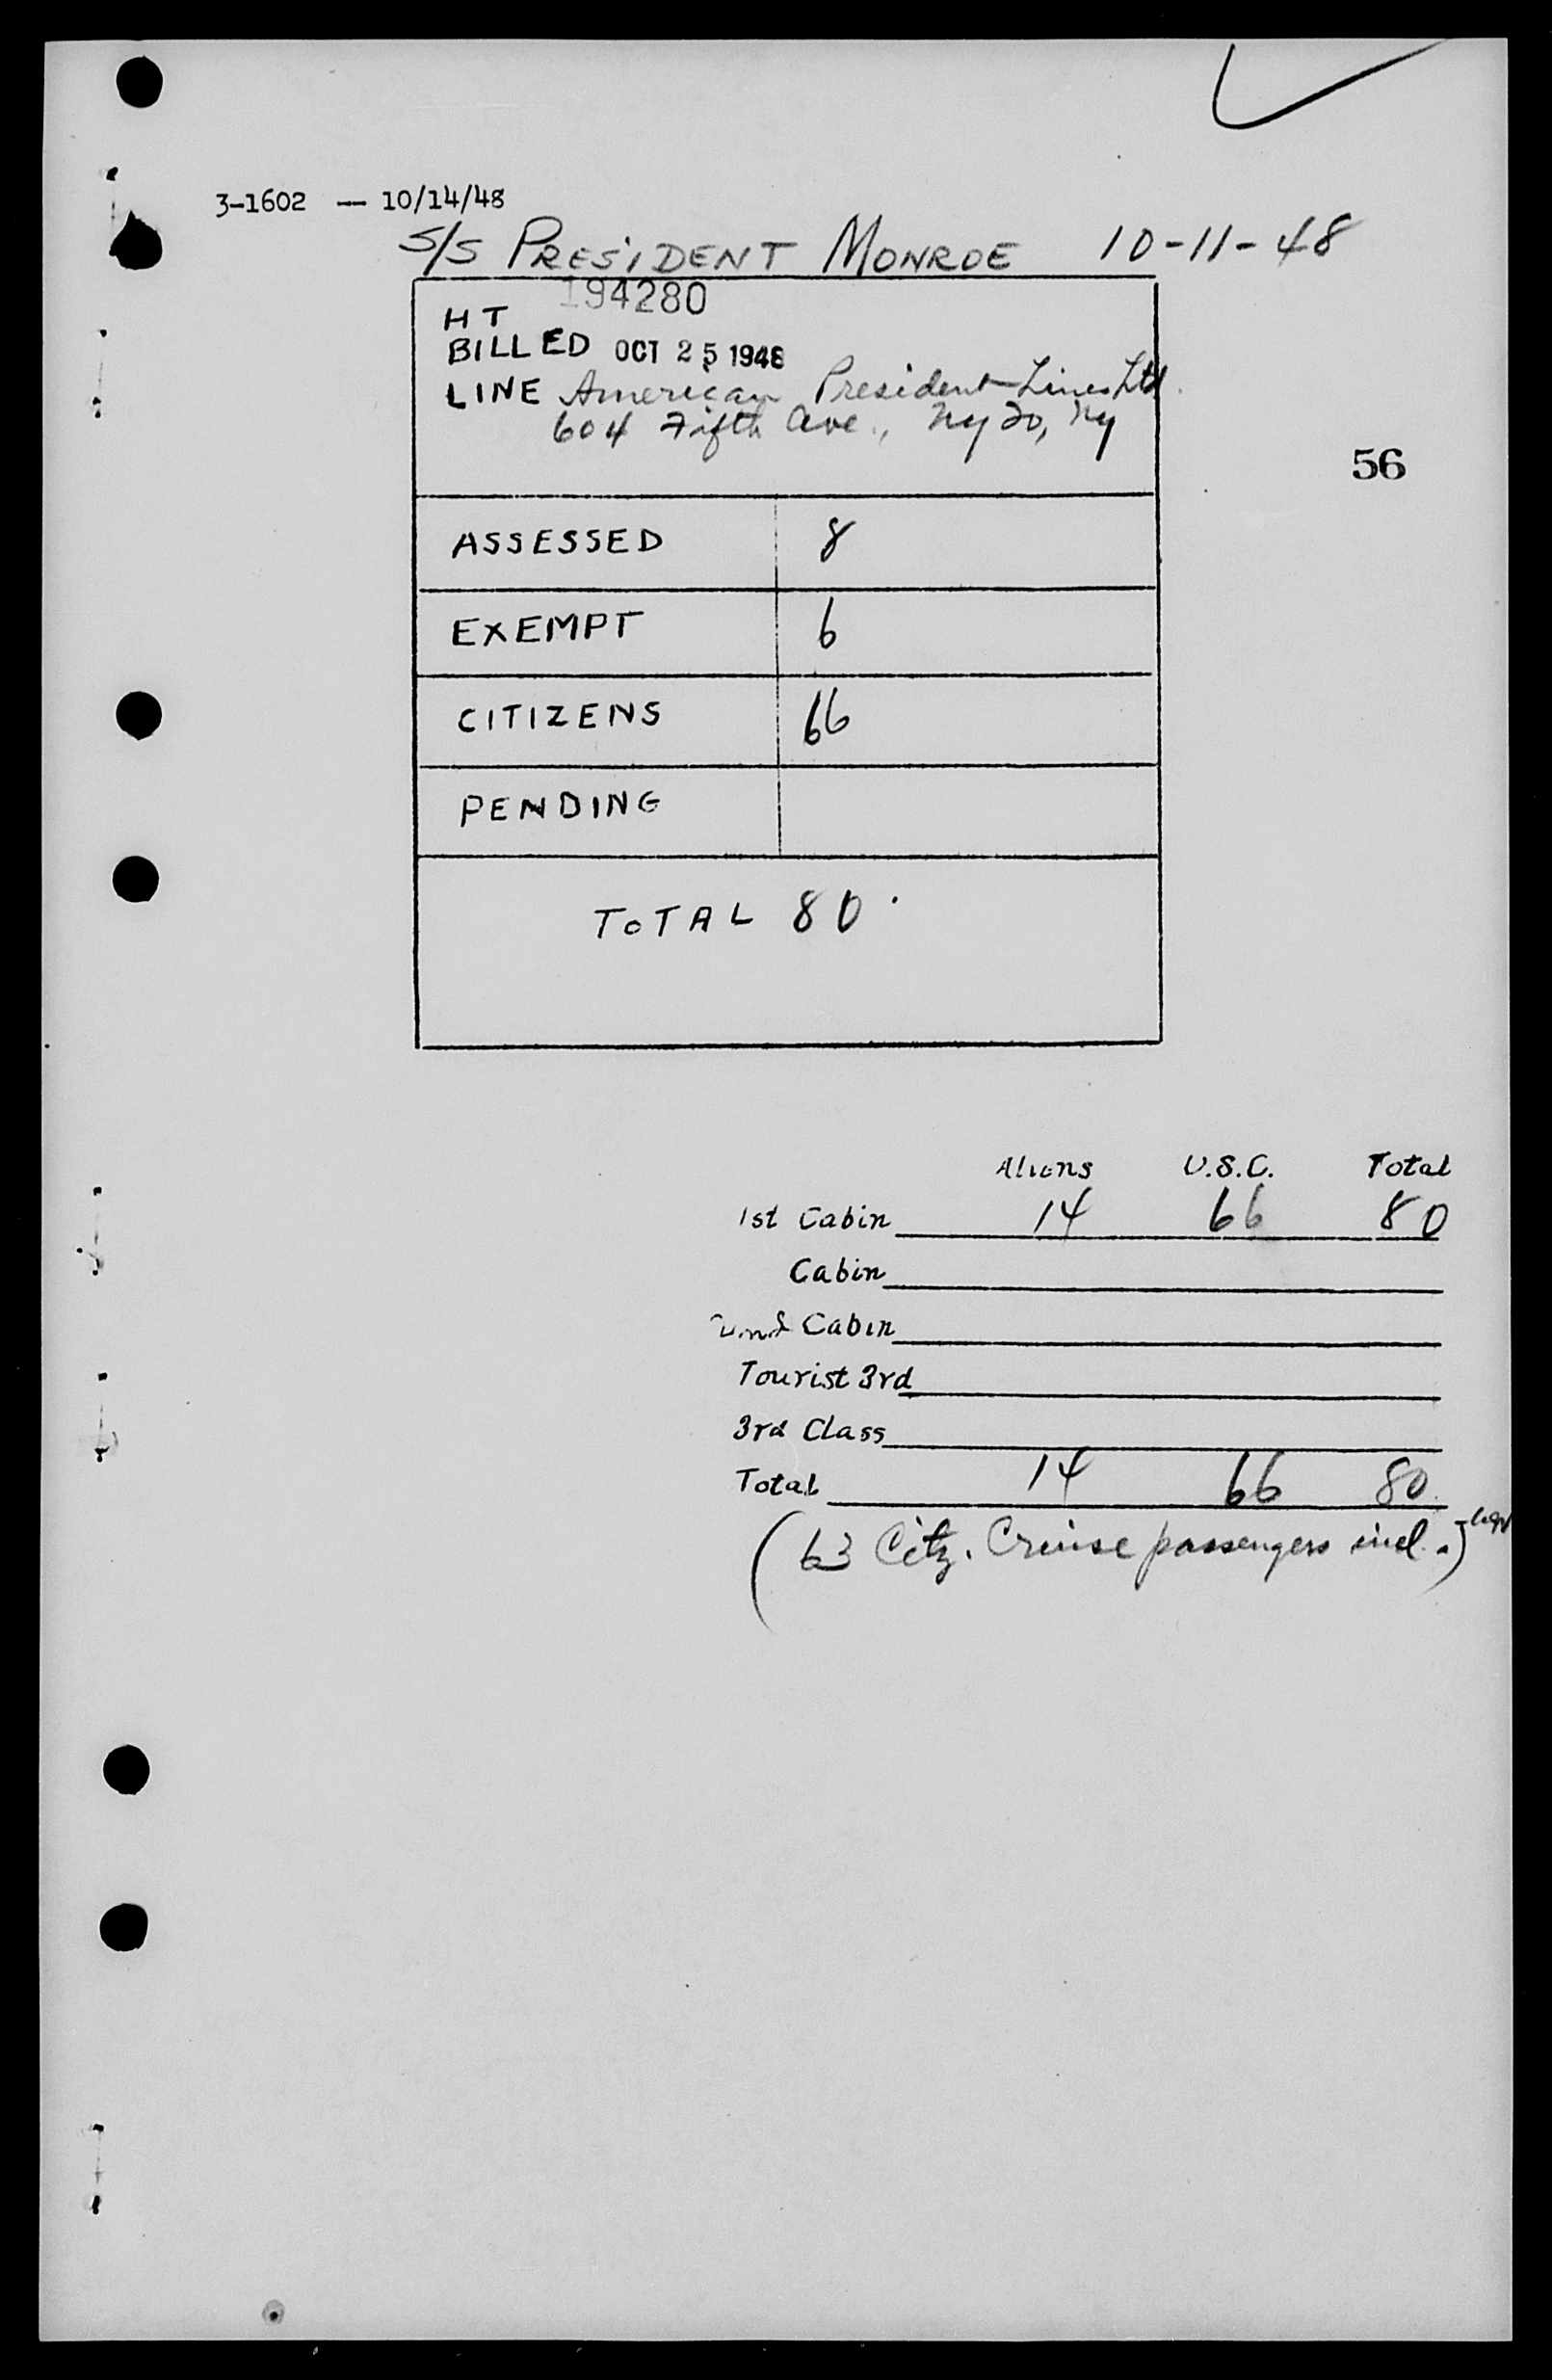 3-1602 — 10/14/48
S/S PRESIDENT MONROE 10-11-48
194280
HT
BILLED OCT 25 1948
LINE American President Lines Ltd.
604 Fifth Ave., NY 20, NY
56
ASSESSED 8
EXEMPT 6
CITIZENS 66
PENDING
TOTAL 80
Aliens U.S.C. Total
1st Cabin 14 66 80
Cabin
2nd Cabin
Tourist 3rd
3rd Class
Total 14 66 80
(63 Citz. Cruise passengers incl.)